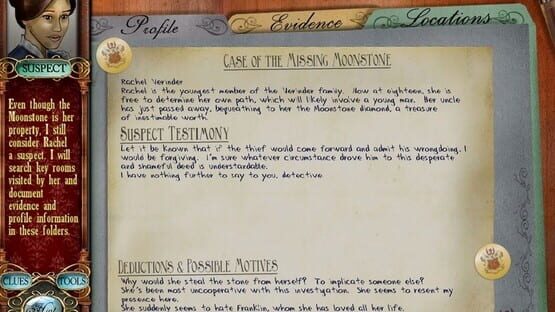 Profile
Evidence
Locations
SUSPECT
Even though the
Moonstone is her
property, I still
consider Rachel
a suspect. I will
search key rooms
visited by her and
document
evidence and
profile information
in these folders.
CLUES
TOOLS
CASE OF THE MISSING MOONSTONE
Rachel Verinder
Rachel is the youngest member of the Verinder family. Now at eighteen, she is
free to determine her own path, which will likely involve a young man. Her uncle
has just passed away, bequeathing to her the Moonstone diamond, a treasure
of inestimable worth.
SUSPECT TESTIMONY
Let it be known that if the thief would come forward and admit his wrongdoing, I
would be forgiving. I'm sure whatever circumstance drove him to this desperate
and shameful deed is understandable.
I have nothing further to say to you, detective.
DEDUCTIONS & POSSIBLE MOTIVES
Why would she steal the stone from herself? To implicate someone else?
She's been most uncooperative with this investigation. She seems to resent my
presence here.
She suddenly seems to hate Franklin, whom she has loved all her life.